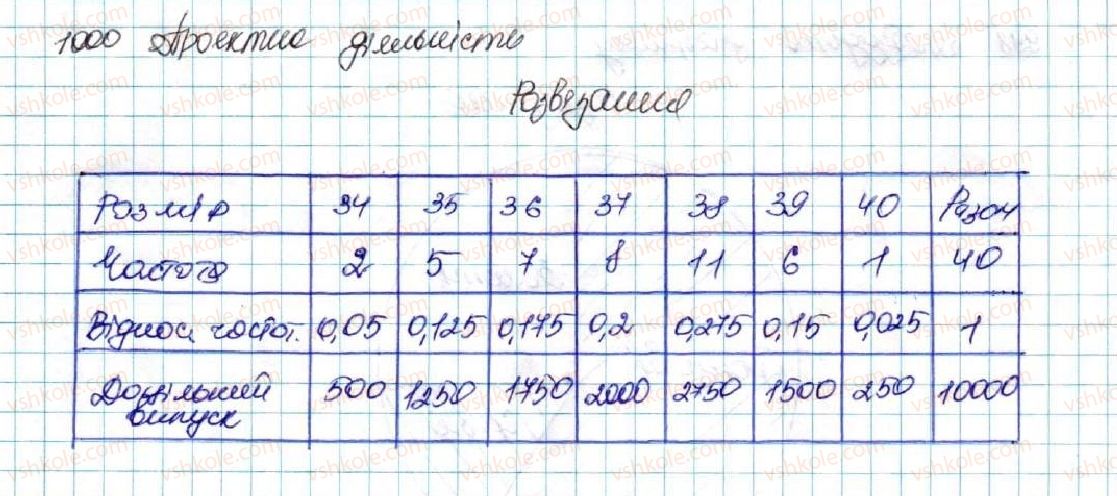 1000 Проектна діяльність
Розвязання
Розмір 34 35 36 37 38 39 40 Разом
Частота 2 5 7 8 11 6 1 40
Віднос. частот. 0,05 0,125 0,175 0,2 0,275 0,15 0,025 1
Доцільний випуск 500 1250 1750 2000 2750 1500 250 10000
vshkole.com